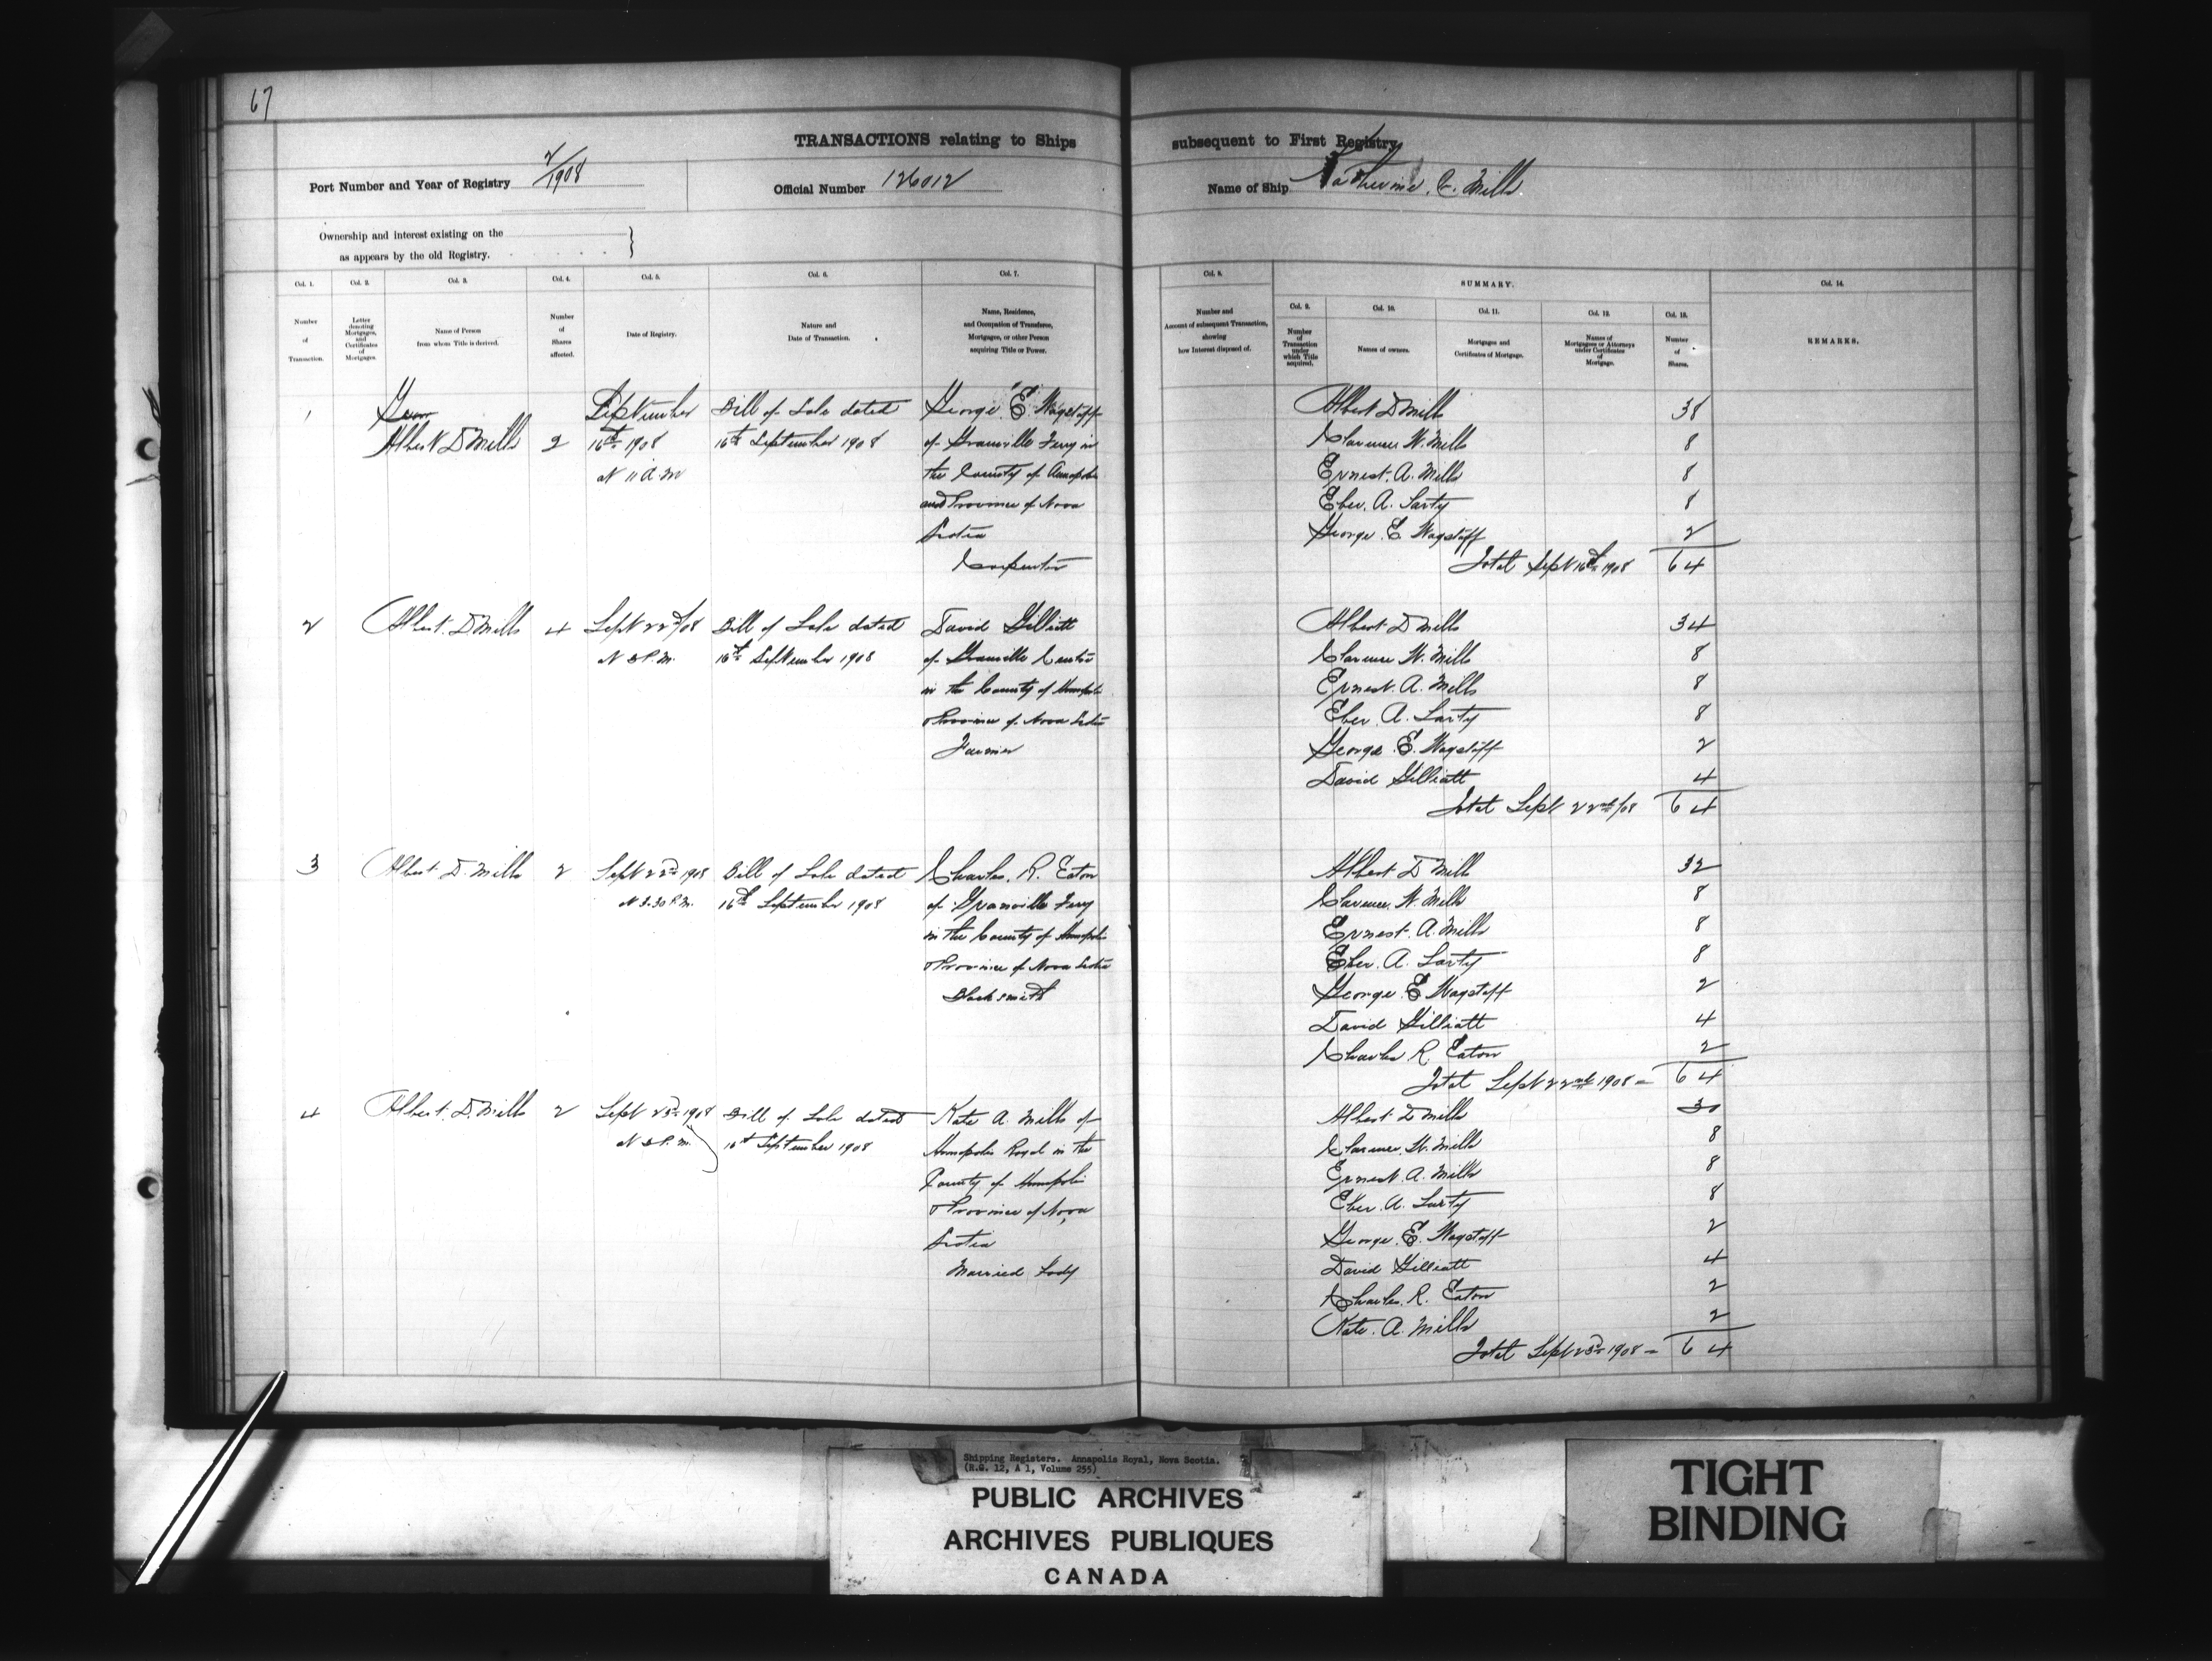 67
TRANSACTIONS relating to Ships subsequent to First Registry
Port Number and Year of Registry 2/1908 Official Number 126012 Name of Ship Katherine. V. Mills
Ownership and interest existing on the
as appears by the old Registry.
Col. 1. Col. 2. Col. 3. Col. 4. Col. 5. Col. 6. Col. 7. Col. 8. SUMMARY. Col. 14.
Col. 9. Col. 10. Col. 11. Col. 12. Col. 13.
Number of Transaction.
Letter denoting Mortgages, and Certificates of Mortgages.
Name of Person from whom Title is derived.
Number of Shares affected.
Date of Registry.
Nature and Date of Transaction.
Name, Residence, and Occupation of Transferee, Mortgagee, or other Person acquiring Title or Power.
Number and Account of subsequent Transaction, showing how Interest disposed of.
Number of Transaction under which Title acquired.
Names of owners.
Mortgages and Certificates of Mortgage.
Names of Mortgagees or Attorneys under Certificates of Mortgage.
Number of Shares.
REMARKS.
1 September Bill of Sale dated George. E. Wagstaff
Albert D Mills 2 16th 1908 16th September 1908 of Granville Ferry in
At 11 A.M the County of Annapolis
and Province of Nova
Scotia
Carpenter
Albert D Mills 38
Clarence W. Mills 8
Ernest. A. Mills 8
Eber. A. Sarty 8
George. E. Wagstaff 2
Total Sept 16th 1908 64
2 Albert. D Mills 4 Sept 22nd/08 Bill of Sale dated David Gilliatt
At 3 P.M. 16th September 1908 of Granville Centre
in the County of Annapolis
Province of Nova Scotia
Farmer
Albert D Mills 34
Clarence W. Mills 8
Ernest. A. Mills 8
Eber. A. Sarty 8
George. E. Wagstaff 2
David Gilliatt 4
Total Sept 22nd/08 64
3 Albert D. Mills 2 Sept 22nd 1908 Bill of Sale dated Charles. R. Eaton
At 3.30 P.M. 16th September 1908 of Granville Ferry
in the County of Annapolis
Province of Nova Scotia
Blacksmith
Albert D Mills 32
Clarence. W. Mills 8
Ernest. A. Mills 8
Eber. A. Sarty 8
George. E Wagstaff 2
David Gilliatt 4
Charles R. Eaton 2
Total Sept 22nd 1908 = 64
4 Albert. D. Mills 2 Sept 23rd 1908 Bill of Sale dated Kate A. Mills of
At 3 P.M. 16th September 1908 Annapolis Royal in the
County of Annapolis
Province of Nova
Scotia
Married Lady
Albert D Mills 30
Clarence. W. Mills 8
Ernest A. Mills 8
Eber. A. Sarty 8
George. E. Wagstaff 2
David Gilliatt 4
Charles. R. Eaton 2
Kate. A. Mills 2
Total Sept 23rd 1908 = 64
Shipping Registers. Annapolis Royal, Nova Scotia.
(R.G. 12, A 1, Volume 255)
PUBLIC ARCHIVES
ARCHIVES PUBLIQUES
CANADA
TIGHT
BINDING